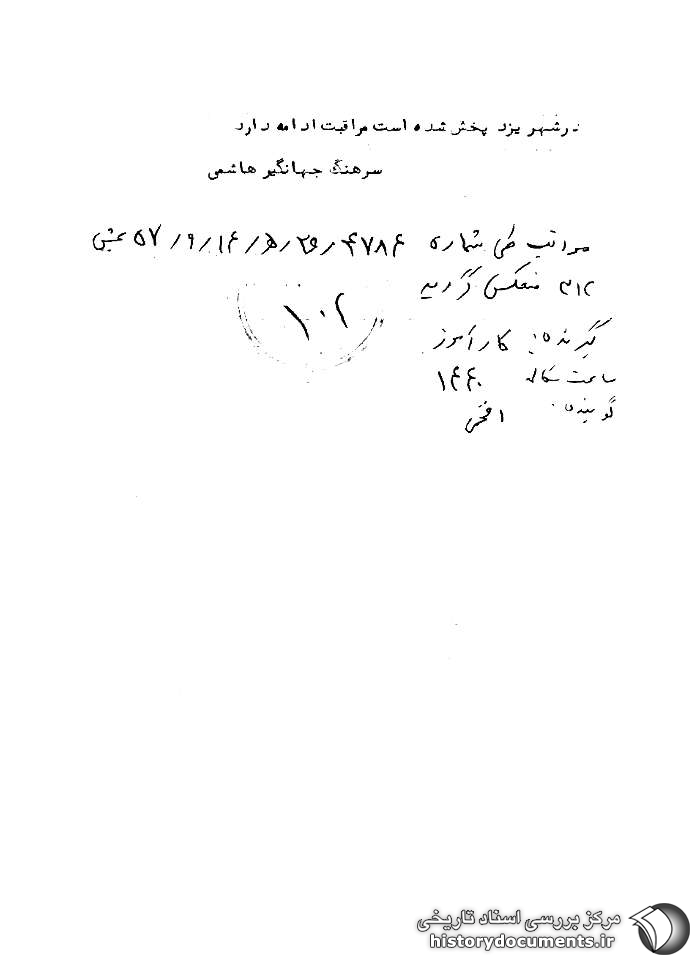 در شهر یزد پخش شده است مراقبت ادامه دارد
سرهنگ جهانگیر هاشمی
مراتب طی شماره ۴۷۸۴/ ۲۵/ ۵/ ۱۴/ ۹/ ۵۷ بخش
۳۱۲ منعکس گردید
۱۰۲
گیرنده: کارآموز
ساعت مکالمه ۱۴۴۰
گوینده:
مرکز بررسی اسناد تاریخی
historydocuments.ir